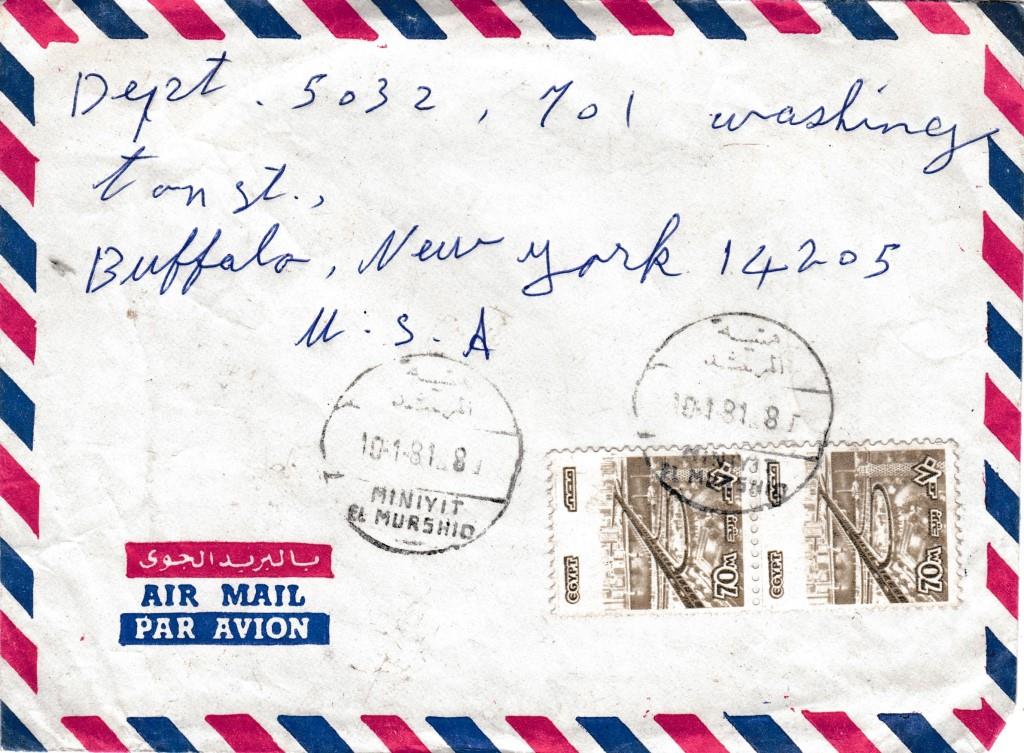 Dept. 5032, 701 washing
ton st.,
Buffalo, New york 14205
U.S.A
منية
المرشد
10-1-81 8
MINIYIT
EL MURSHID
منية
المرشد
10-1-81 8
MINIYIT
EL MURSHID
بالبريد الجوى
AIR MAIL
PAR AVION
مصر
EGYPT
٧٠
70M
مصر
EGYPT
٧٠
70M